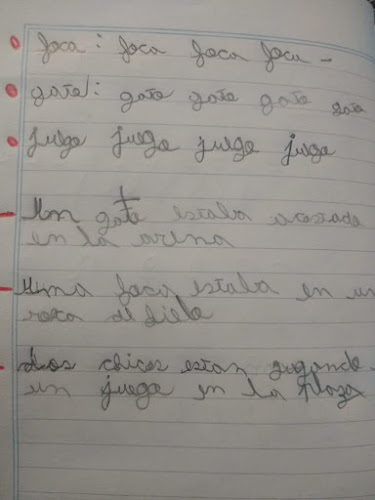 foca: foca foca foca -
gato: gato gato gato gato
juego juego juego juego
Un gato estaba acostado
en la arena
Una foca estaba en un
roca di hielo
Los chicos estan jugando
un juego en la plaza